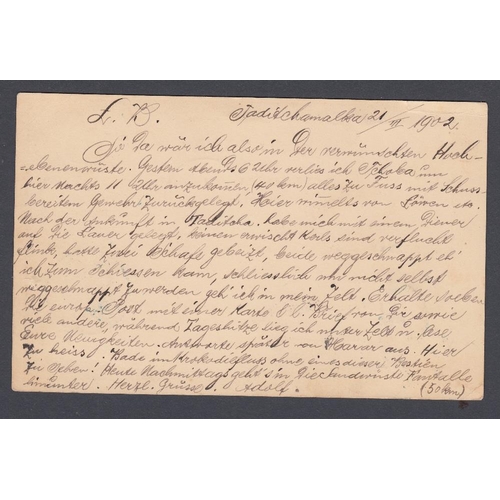 L. B. Taditchamalka 21/VI 1902.
So da wär ich also in der verwünschten Hoch-
=ebenenwüste. Gestern Abends 6 Uhr verliess ich Tchoba, um
hier Nachts 11 Uhr anzukommen, (40 km) alles zu Fuss mit Schuss-
bereiten Gewehr zurückgelegt. Hier wimmelts von Löwen etc.
Nach der Ankunft in habe mich mit einem Diener
auf die Lauer gelegt, keinen erwischt Kerls sind verflucht
flink, hatte zwei Schafe gebeizt, beide weggschnappt eh'
ich zum Schiessen kam, schliesslich um nicht selbst
weggeschnappt zu werden geh' ich in mein Zelt. Erhalte soeben
die europ. Post mit einer Karte & 1 Brief von Dir sowie
viele andere, während Tageshitze lieg ich unter Zelt u. lese
Eure Neuigkeiten. Antworte später von Harar aus. Hier
zu heiss! Bade im Krokodilfluss ohne eines dieser Bestien
zu sehen! Heute Nachmittags geht's in die Sandwüste
hinunter. Herzl. Grüsse. Adolf. (50 km)